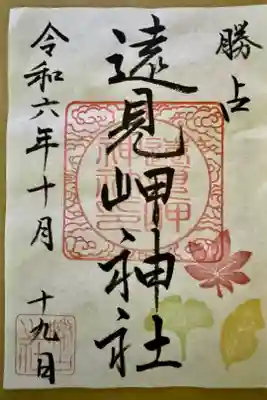 勝占
遠見岬神社
令和六年十月十九日